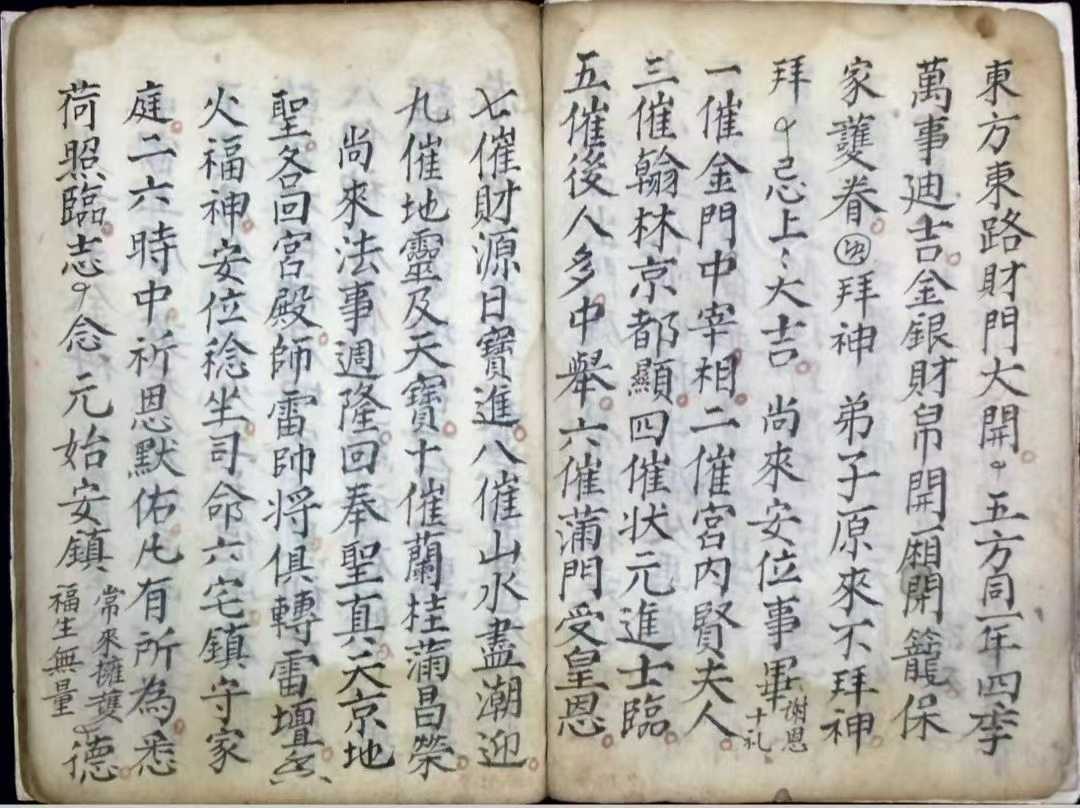 東方東路財門大開々五方同一年四季
萬事迪吉金銀財帛開廂開籠保
家護眷 拜神 弟子原來不拜神
拜々忌上〻大吉 尚來安位事畢 謝恩十礼
一催金門中宰相二催宮內賢夫人
三催翰林京都顯四催状元進士臨
五催後人多中舉六催蒲門受皇恩
七催財源日寶進八催山水盡潮迎
九催地靈及天寶十催蘭桂蒲昌榮
尚來法事週隆回奉聖真天京地
聖各回宮殿師雷帥將俱轉雷壇
火福神安位稔坐司命六宅鎮守家
庭二六時中祈恩默佑凡有所為悉
荷照臨志々念元始安鎮 常來擁護 福生無量 々德